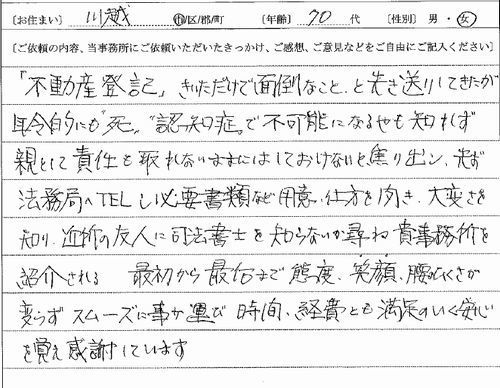 [お住まい] 川越 市/区/郡/町 [年齢] 70 代 [性別] 男・女
[ご依頼の内容、当事務所にご依頼いただいたきっかけ、ご感想、ご意見などをご自由にご記入ください]
「不動産登記」きいただけで面倒なこと、と先き送りしてきたが
年令的にも"死"、"認知症"で不可能になるやも知れず
親として責任も取れないままにはしておけないと焦り出し、先ず
法務局へTELし必要書類など用意、仕方を聞き、大変さを
知り、近所の友人に司法書士を知らないか尋ね貴事務所を
紹介される 最初から最后まで態度、笑顔、腰のひくさが
変らずスムーズに事が運び 時間、経費とも満足のいく安心
を覚え感謝しています